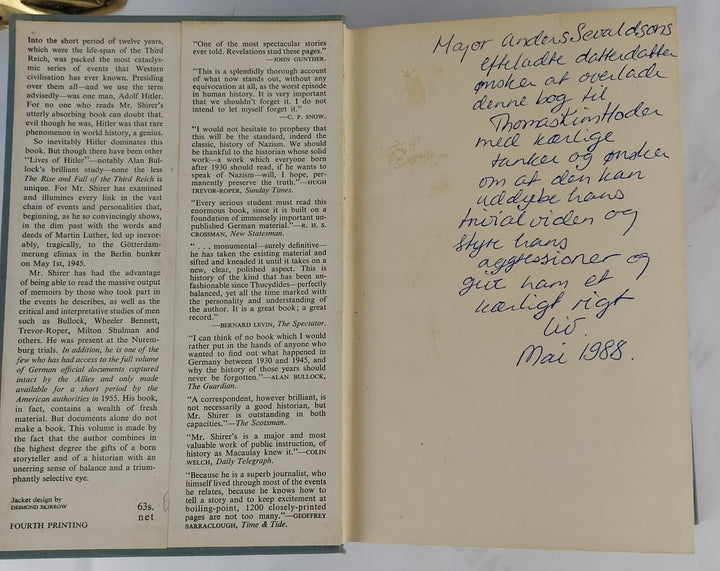 Into the short period of twelve years,
which were the life-span of the Third
Reich, was packed the most cataclys-
mic series of events that Western
civilisation has ever known. Presiding
over them all—and we use the term
advisedly—was one man, Adolf Hitler.
For no one who reads Mr. Shirer's
utterly absorbing book can doubt that,
evil though he was, Hitler was that rare
phenomenon in world history, a genius.
So inevitably Hitler dominates this
book. But though there have been other
"Lives of Hitler"—notably Alan Bul-
lock's brilliant study—none the less
The Rise and Fall of the Third Reich is
unique. For Mr. Shirer has examined
and illumines every link in the vast
chain of events and personalities that,
beginning, as he so convincingly shows,
in the dim past with the words and
deeds of Martin Luther, led up inexor-
ably, tragically, to the Götterdam-
merung climax in the Berlin bunker
on May 1st, 1945.
Mr. Shirer has had the advantage
of being able to read the massive output
of memoirs by those who took part in
the events he describes, as well as the
critical and interpretative studies of men
such as Bullock, Wheeler Bennett,
Trevor-Roper, Milton Shulman and
others. He was present at the Nurem-
burg trials. In addition, he is one of the
few who has had access to the full volume
of German official documents captured
intact by the Allies and only made
available for a short period by the
American authorities in 1955. His book,
in fact, contains a wealth of fresh
material. But documents alone do not
make a book. This volume is made by
the fact that the author combines in
the highest degree the gifts of a born
storyteller and of a historian with an
unerring sense of balance and a trium-
phantly selective eye.
Jacket design by
DESMOND SKIRROW
63s.
net
FOURTH PRINTING
"One of the most spectacular stories
ever told. Revelations stud these pages."
—JOHN GUNTHER.
"This is a splendidly thorough account
of what now stands out, without any
equivocation at all, as the worst episode
in human history. It is very important
that we shouldn't forget it. I do not
intend to let myself forget it."
—C. P. SNOW.
"I would not hesitate to prophesy that
this will be the standard, indeed the
classic, history of Nazism. We should
be thankful to the historian whose solid
work—a work which everyone born
after 1930 should read, if he wants to
speak of Nazism—will, I hope, per-
manently preserve the truth."—HUGH
TREVOR-ROPER, Sunday Times.
"Every serious student must read this
enormous book, since it is built on a
foundation of immensely important un-
published German material."—R. H. S.
CROSSMAN, New Statesman.
". . . monumental—surely definitive—
he has taken the existing material and
sifted and kneaded it until it takes on a
new, clear, polished aspect. This is
history of the kind that has been un-
fashionable since Thucydides—perfectly
balanced, yet all the time marked with
the personality and understanding of
the author. It is a great book; a great
record."
—BERNARD LEVIN, The Spectator.
"I can think of no book which I would
rather put in the hands of anyone who
wanted to find out what happened in
Germany between 1930 and 1945, and
why the history of those years should
never be forgotten."—ALAN BULLOCK,
The Guardian.
"A correspondent, however brilliant, is
not necessarily a good historian, but
Mr. Shirer is outstanding in both
capacities."—The Scotsman.
"Mr. Shirer's is a major and most
valuable work of public instruction, of
history as Macaulay knew it."—COLIN
WELCH, Daily Telegraph.
"Because he is a superb journalist, who
himself lived through most of the events
he relates, because he knows how to
tell a story and to keep excitement at
boiling-point, 1200 closely-printed
pages are not too many."—GEOFFREY
BARRACLOUGH, Time & Tide.
Major Anders Sevaldsons
efterladte datterdatter
ønsker at overlade
denne bog til
Thomas Kim Hoder
med kærlige
tanker og ønsker
om at den kan
uddybe hans
trivialviden og
styre hans
aggressioner og
give ham et
kærligt rigt
liv.
Mai 1988.